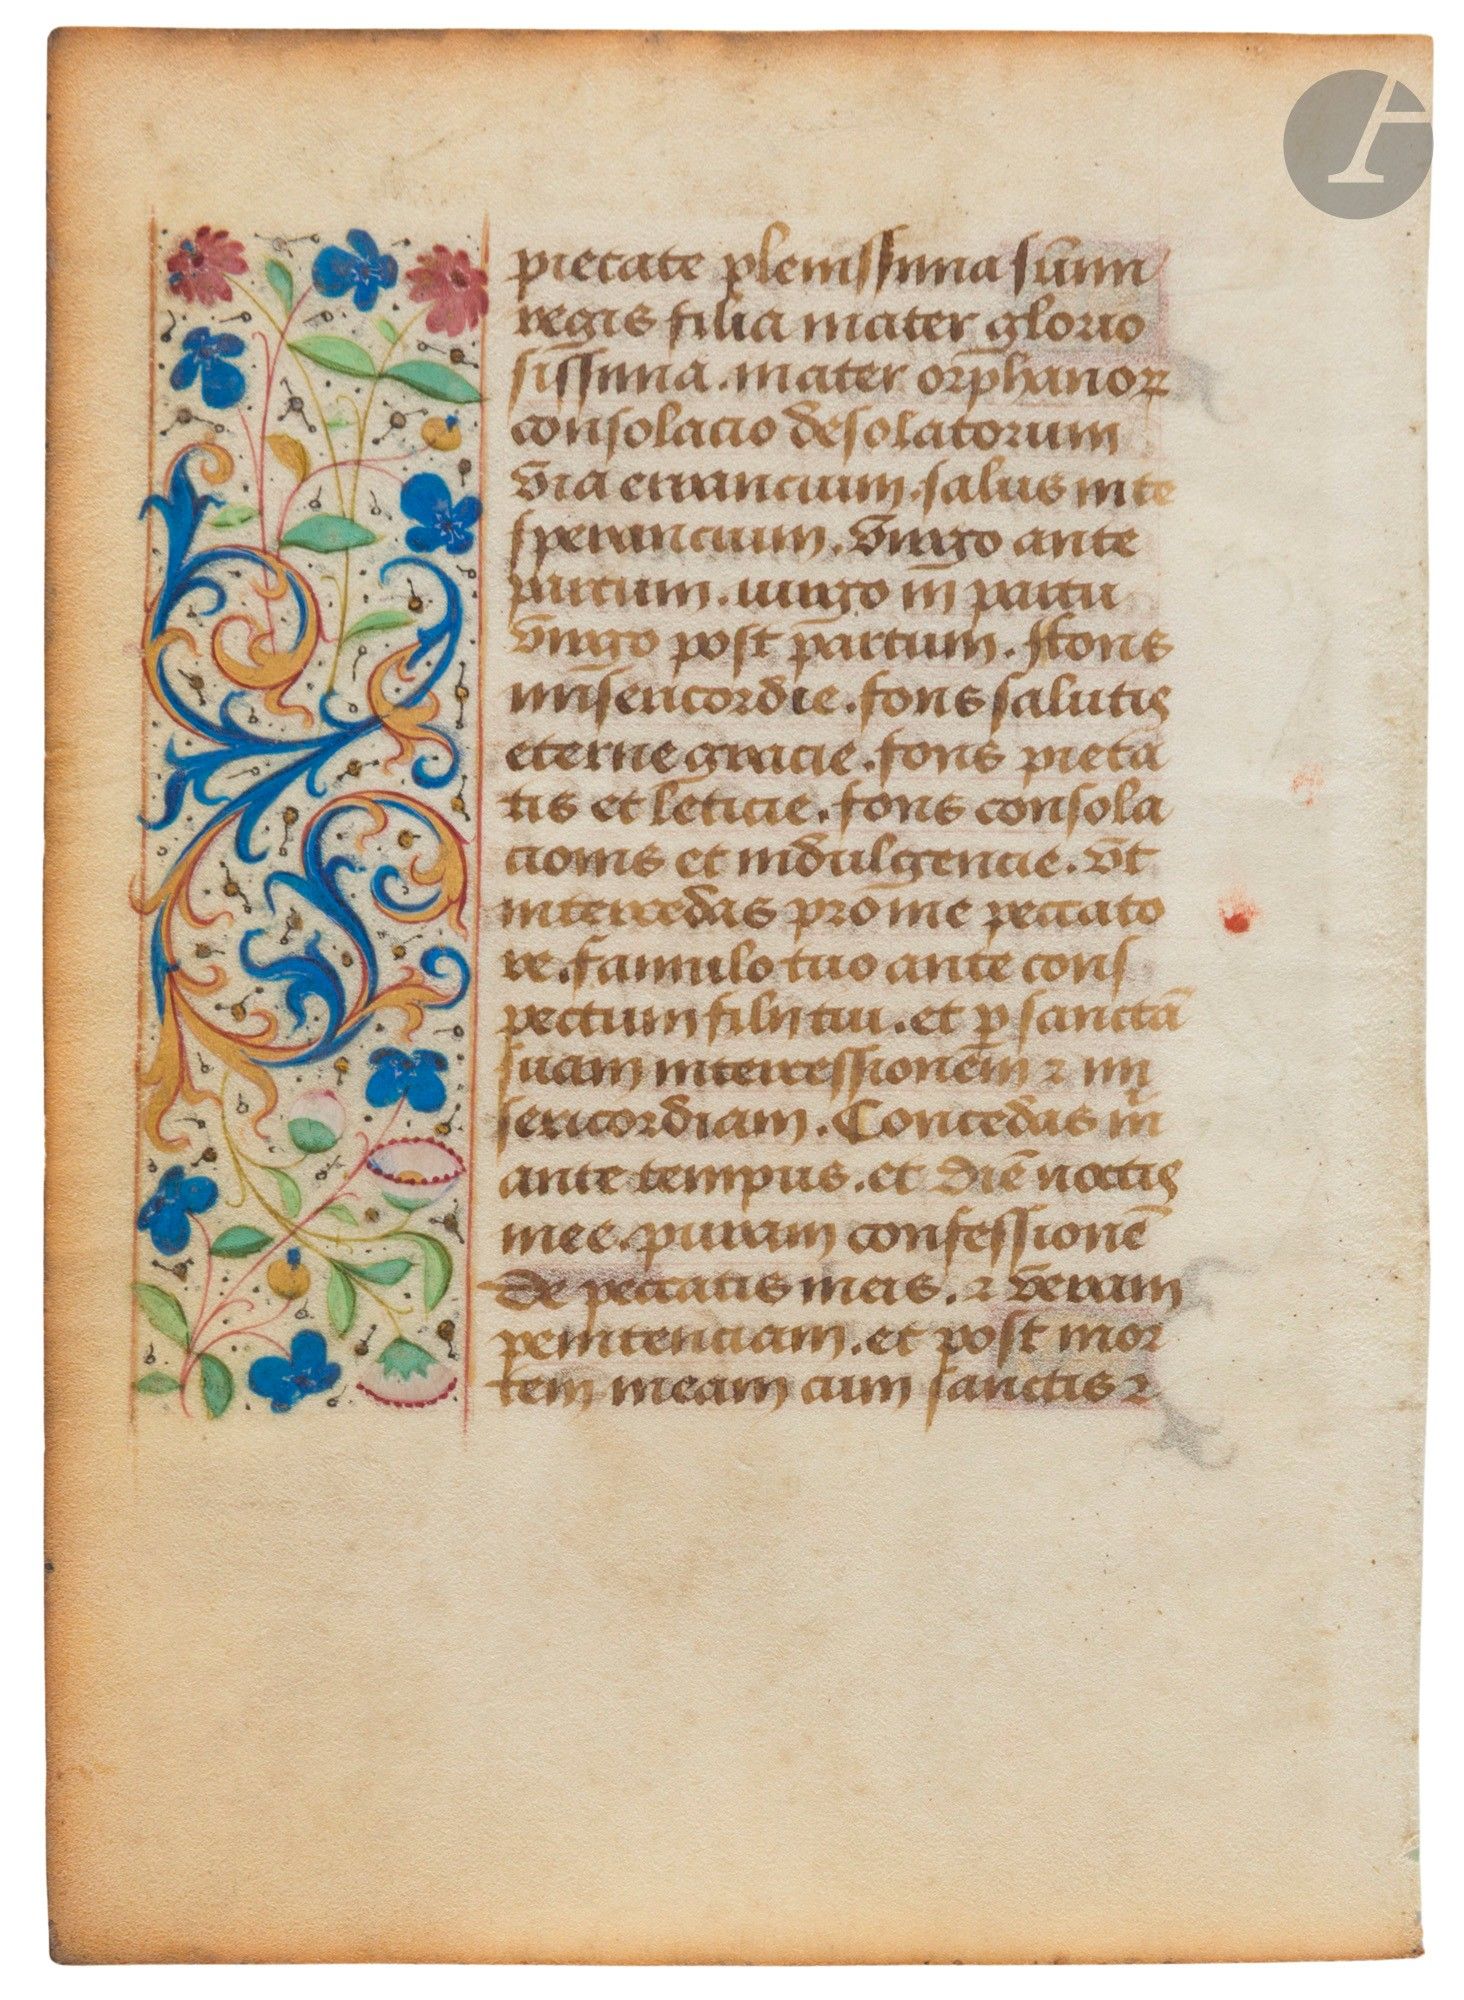 pietate plenissima sum̄i
regis filia mater glorio
sissima. mater orphanoꝝ
consolacio desolatorum
via errancium. salus in te
sperancium. virgo ante
partum. uirgo in partu
virgo post partum. ffons
misericordie. fons salutis
eterne gracie. fons pieta
tis et leticie. fons consola
cionis et indulgencie. vt
intercedas pro me peccato
re. famulo tuo ante cons
pectum filij tui. et ꝑ sanctā
suam intercessionem ⁊ mi
sericordiam. Concedas m̄
ante tempus. et diē noctis
mee. puram confessionē
de peccatis meis. ⁊ veram
penitenciam. et post mor
tem meam cum sanctis ⁊